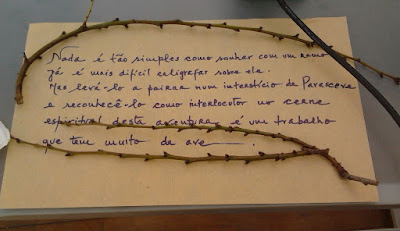 Nada é tão simples como sonhar com um ramo
já é mais difícil caligrafar sobre ele.
Mas levá-lo a pairar num interstício da Parescove
e reconhecê-lo como interlocutor no cerne
espiritual desta aventura é um trabalho
que tem muito de ave